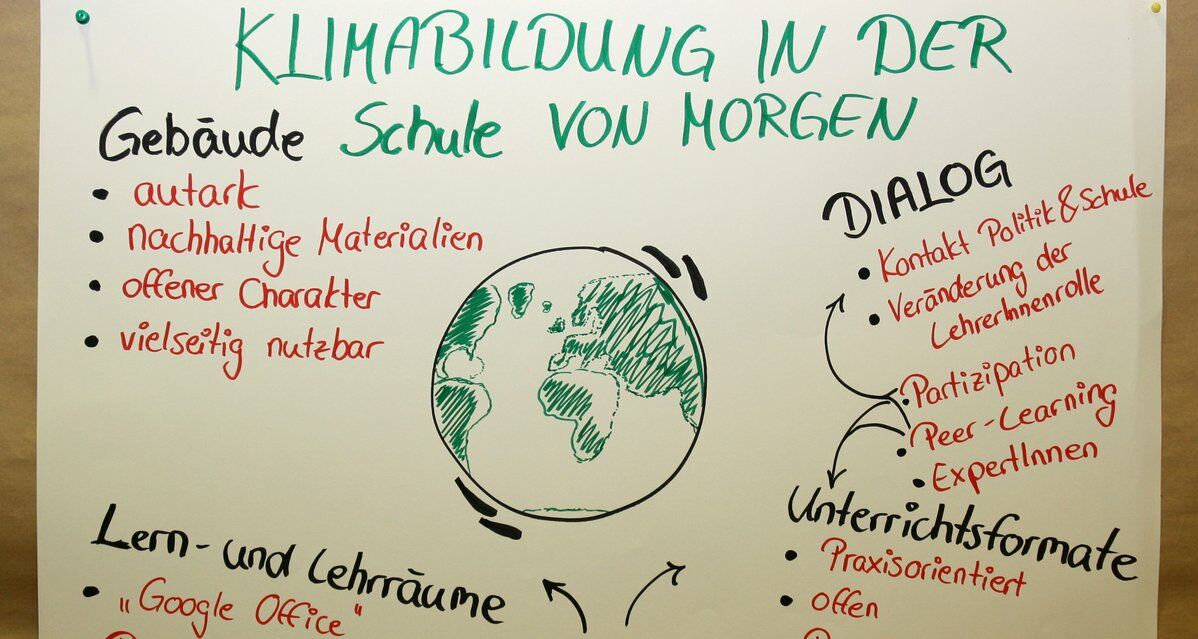 KLIMABILDUNG IN DER
Schule VON MORGEN
Gebäude
• autark
• nachhaltige Materialien
• offener Charakter
• vielseitig nutzbar
DIALOG
• Kontakt Politik & Schule
• Veränderung der
LehrerInnenrolle
• Partizipation
• Peer-Learning
• ExpertInnen
Lern- und Lehrräume
• „Google Office"
Unterrichtsformate
• Praxisorientiert
• offen